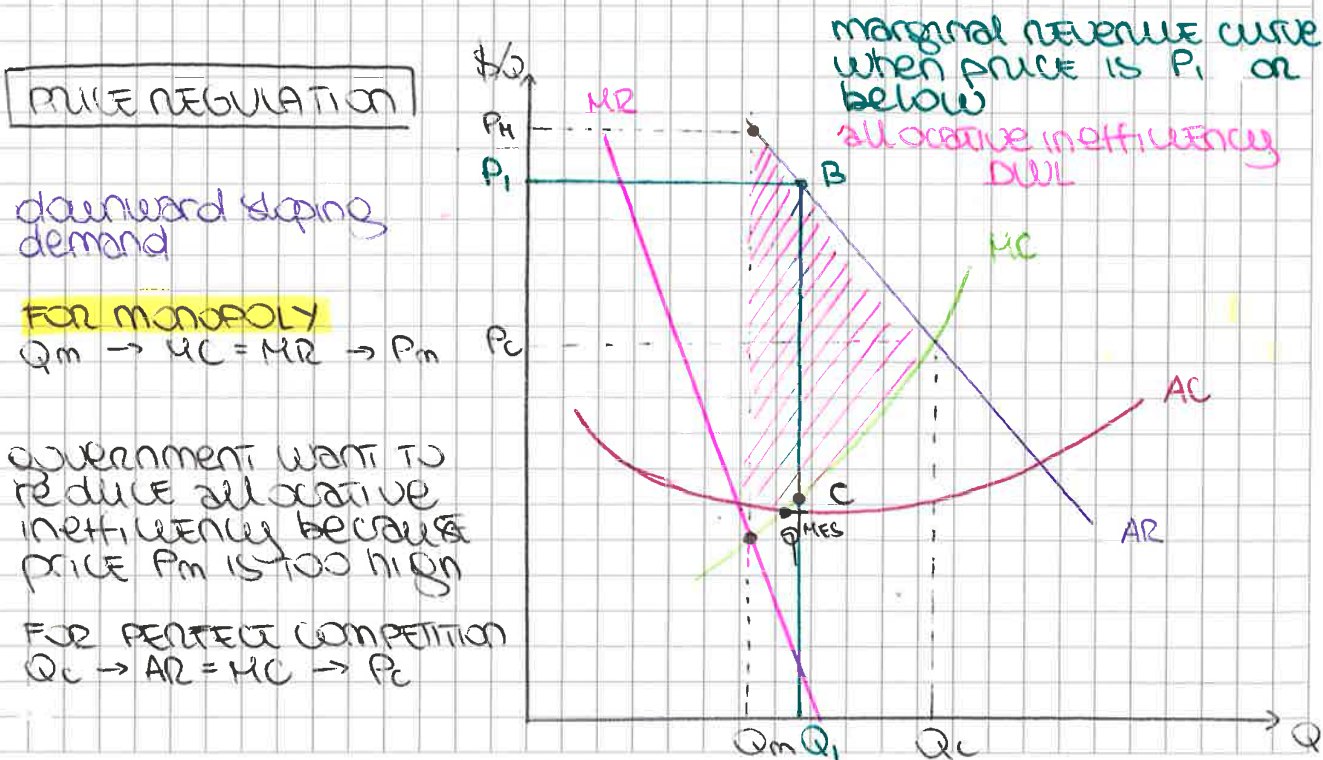 PRICE REGULATION
downward sloping
demand
FOR MONOPOLY
Qm → MC = MR → Pm
government want to
reduce allocative
inefficiency because
price Pm is too high
FOR PERFECT COMPETITION
Qc → AR = MC → Pc
marginal revenue curve
when price is P₁ or
below
allocative inefficiency
DWL
$/Q
MR
PM
P₁
B
MC
Pc
AC
C
MES
AR
Qm Q₁ Qc Q